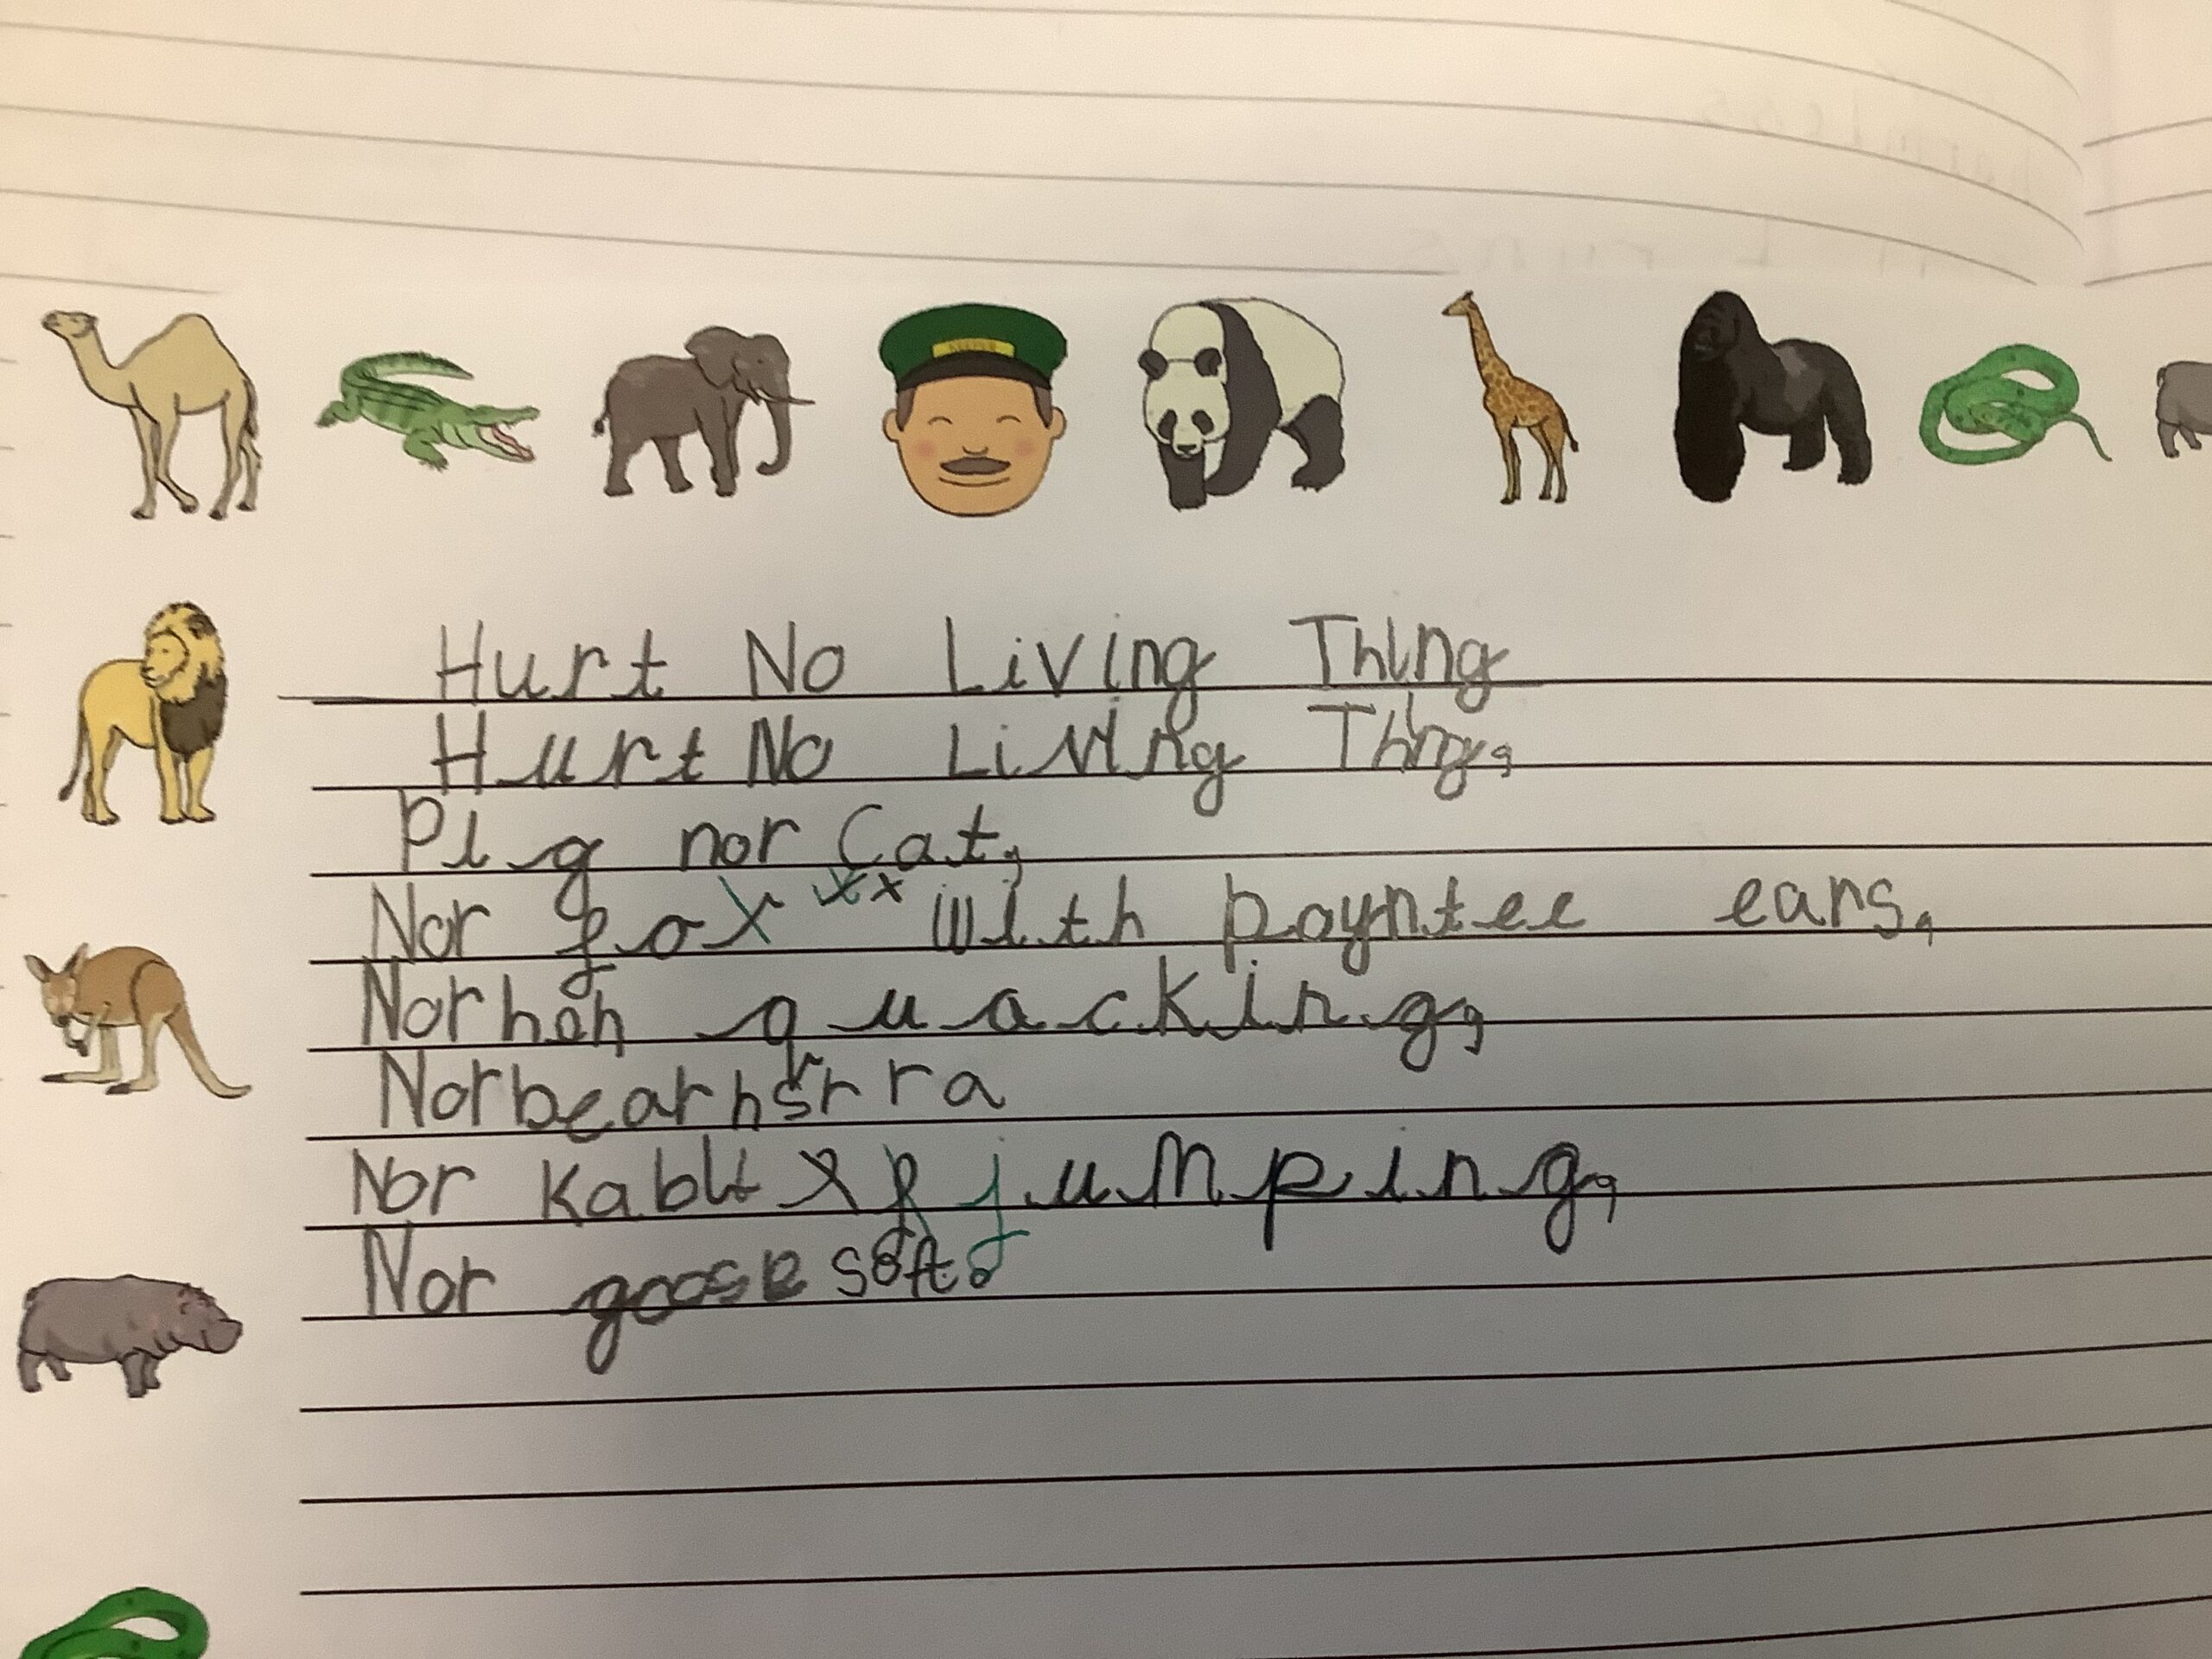 KEEPER
Hurt No Living Thing
Hurt No Living Thing,
Pig nor Cat,
Nor fox x x with poyntee ears,
Nor hen quacking,
Nor bear
Nor jumping,
Nor goose soft.